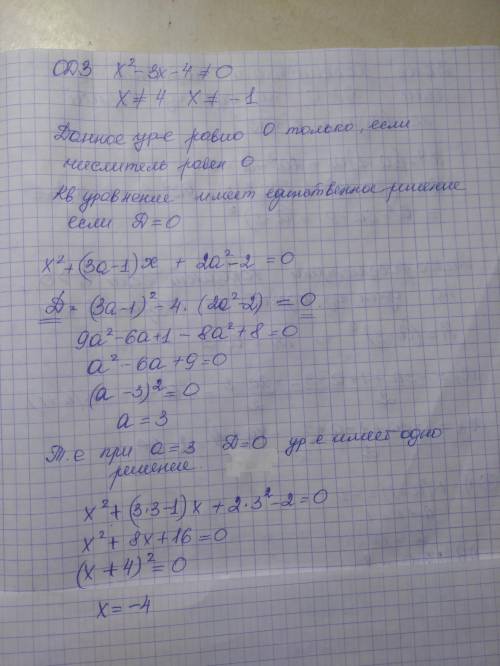 ОДЗ x² - 3x - 4 ≠ 0
x ≠ 4 x ≠ -1
Данное ур-е равно 0 только, если
числитель равен 0
Кв уравнение имеет единственное решение
если D = 0
x² + (3a-1)x + 2a² - 2 = 0
D = (3a-1)² - 4 · (2a² - 2) = 0
9a² - 6a + 1 - 8a² + 8 = 0
a² - 6a + 9 = 0
(a - 3)² = 0
a = 3
Т.е при a = 3 D = 0 ур-е имеет одно
решение
x² + (3·3-1)x + 2·3² - 2 = 0
x² + 8x + 16 = 0
(x + 4)² = 0
x = -4